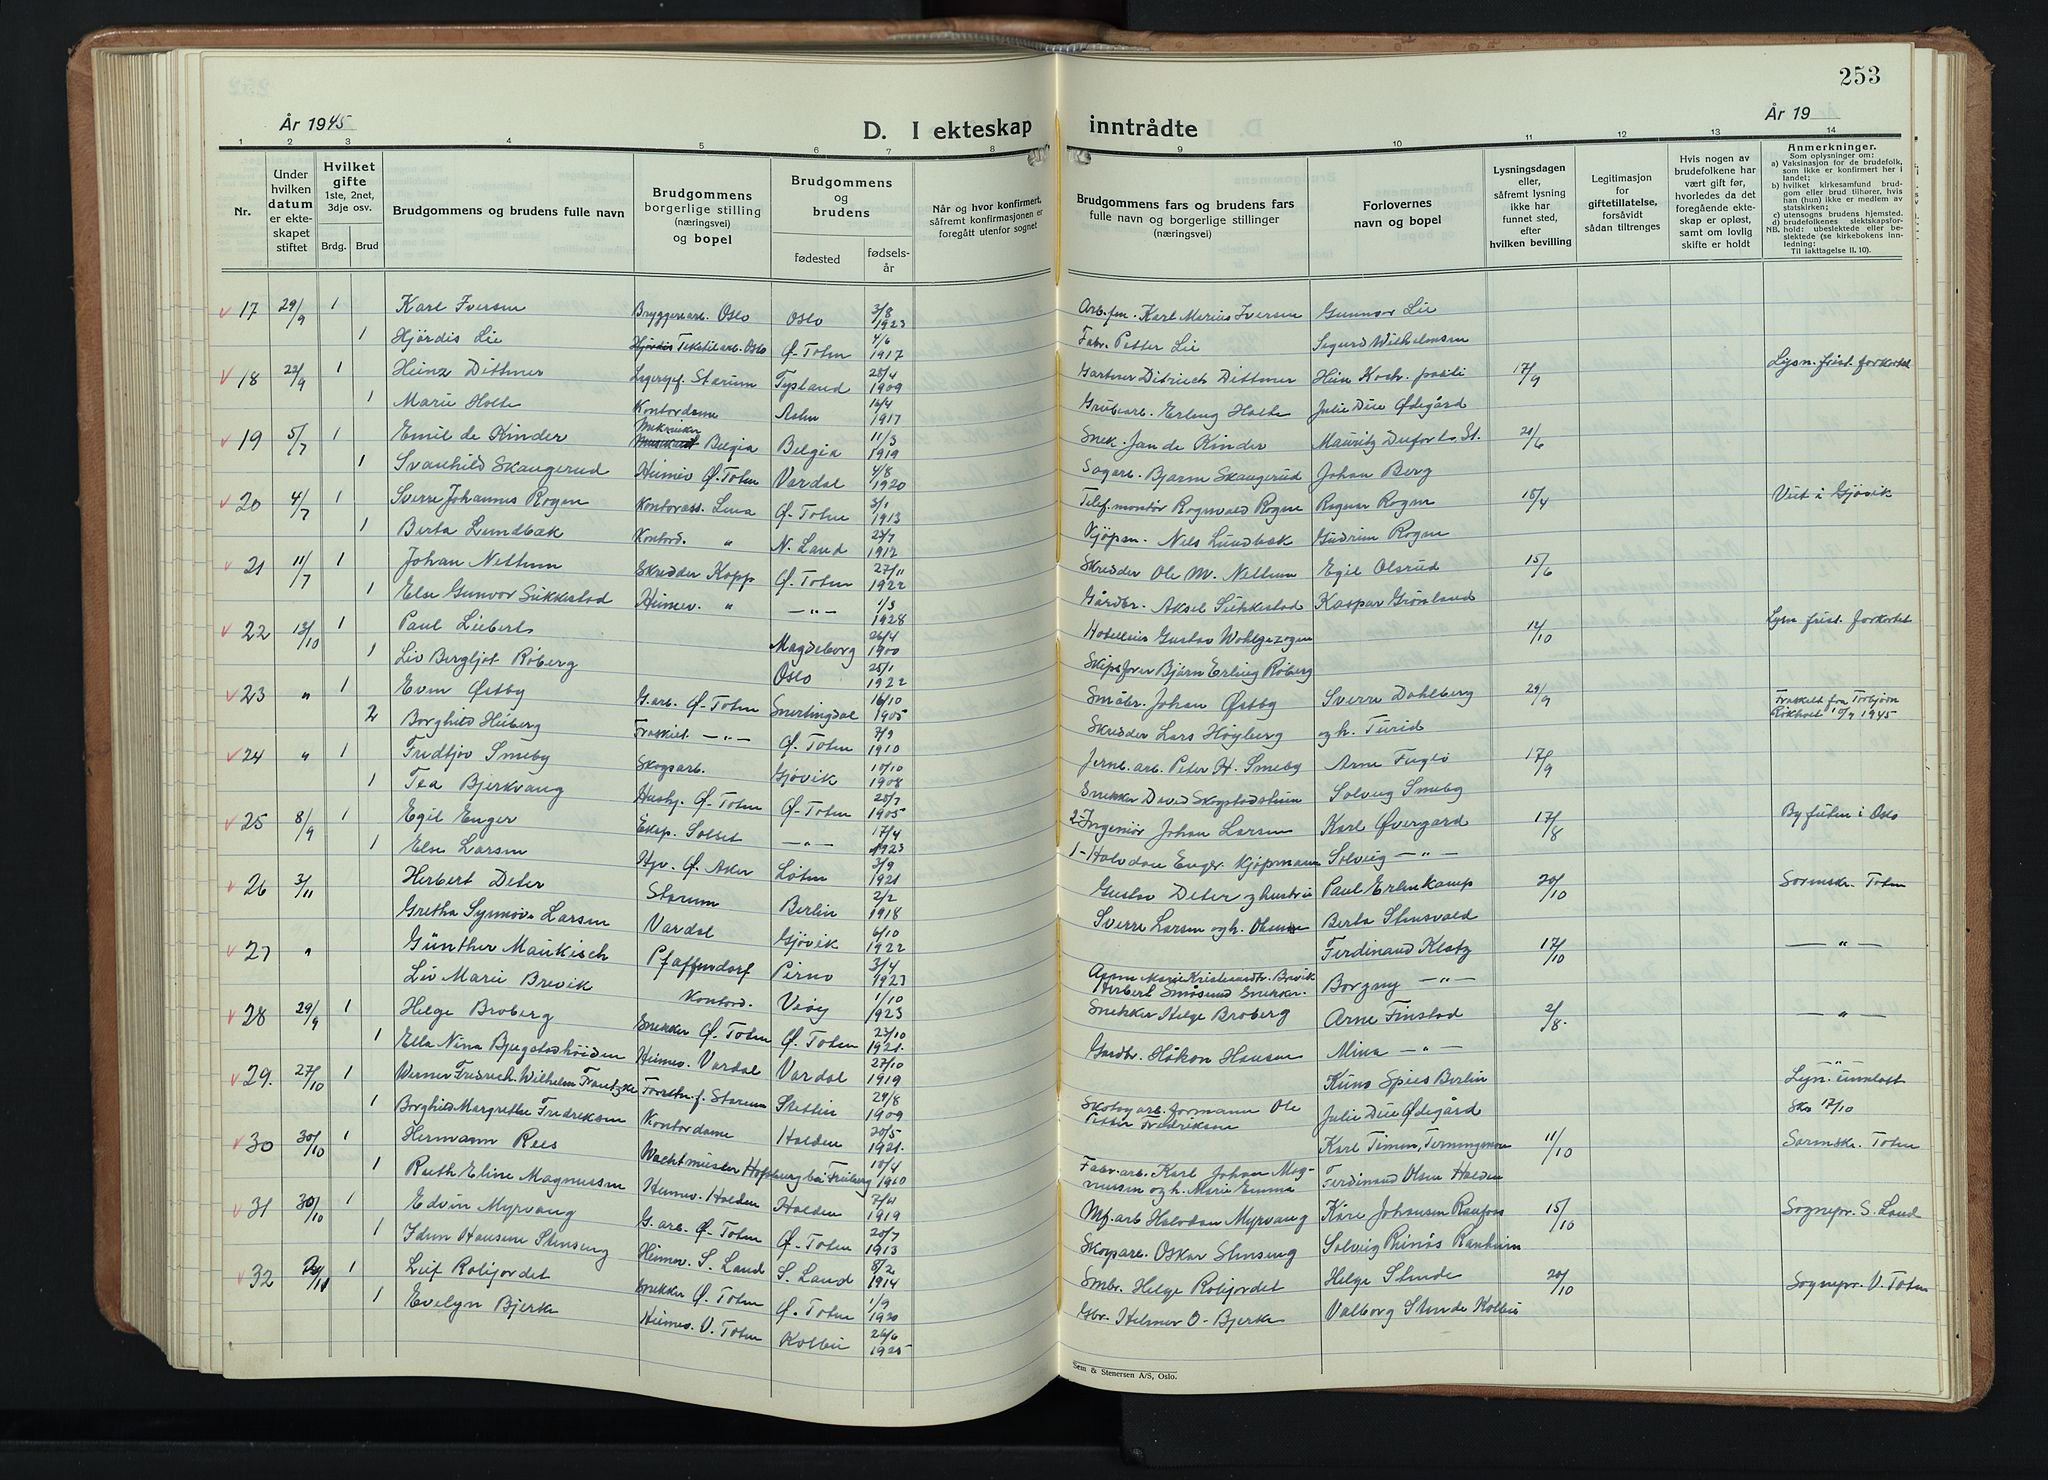 253
År 1945
D. I ekteskap inntrådte
År 19
1 2 3 4 5 6 7 8 9 10 11 12 13 14
Nr.
Under hvilken datum er ekteskapet stiftet
Hvilket gifte 1ste, 2net, 3dje osv.
Brdg. Brud
Brudgommens og brudens fulle navn
Brudgommens borgerlige stilling (næringsvei) og bopel
Brudgommens og brudens
fødested
fødselsår
Når og hvor konfirmert, såfremt konfirmasjonen er foregått utenfor sognet
Brudgommens fars og brudens fars fulle navn og borgerlige stillinger (næringsvei)
Forlovernes navn og bopel
Lysningsdagen eller, såfremt lysning ikke har funnet sted, efter hvilken bevilling
Legitimasjon for giftetillatelse, forsåvidt sådan tiltrenges
Hvis nogen av brudefolkene har vært gift før, hvorledes da det foregående ekteskap er opløst, samt om lovlig skifte er holdt
Anmerkninger.
Som oplysninger om:
a) Vaksinasjon for de brudefolk, som ikke er konfirmert her i landet;
b) hvilket kirkesamfund brudgom eller brud tilhører, hvis han (hun) ikke er medlem av statskirken;
c) utensogns brudens hjemsted.
d) brudefolkenes slektskapsforhold: ubeslektede eller beslektede (se kirkebokens innledning:
NB.
Til iakttagelse II. 10).
17 29/9 1 Karl Iversen Bryggeriarb. Oslo Oslo 3/8 1923 Arb.fm. Karl Marius Iversen Gunnar Lie
1 Hjördis Lie Tekstilarb. Oslo Ø-Toten 4/6 1917 Fabr. Petter Lie Sigurd Wilhelmsen
18 22/9 1 Heinz Dittmer Lagersjef. Starum Tyskland 28/4 1909 Gartner Ditrich Dittmer Hein Koch 17/9 Lysn. frist. forkortet
1 Marie Holte Kontordame 16/4 1917 Grubearb. Erling Holte Julie Due Ødegård
19 5/7 1 Emil de Kinder Mekaniker Belgia Belgia 11/3 1919 Snek. Jan de Kinder 21/6
1 Svanhild Skangerud Heimev Ø.Toten Vardal 4/8 1920 Sagarb. Bjarne Skangerud Johan Berg
20 4/7 1 Sverre Johannes Rogne Kontorass. Lena Ø-Toten 3/1 1913 Telef.montør Rognvald Rogne Ragnar Rogne 15/4 Viet i Gjøvik
1 Berta Lundbæk Kontord. " N. Land 23/7 1912 Kjøpm. Nils Lundbæk Gudrun Rogne
21 11/7 1 Johan Nettum Skredder Kapp Ø-Toten 27/11 1922 Skredder Ole M. Nettum Egil Olsrud 15/6
1 Else Gunvor Sukkestad Heimev. " —"— 1/3 1928 Gårdbr. Aksel Sukkestad Kaspar Grønland
22 13/10 1 Paul Liebert Magdeborg 26/4 1900 Hotelleier Gustav Wohlgezogen 12/10 Lysn frist. forkortet
1 Liv Bergljot Röberg Oslo 25/1 1922 Skipsfører Bjørn Erling Röberg
23 " 1 Even Østby G.arb. Ø-Toten Snertingdal 16/10 1905 Småbr. Johan Østby Sverre Dahlberg 29/9 Fraskilt fra Torbjørn
2 Borghild Høiberg Fraskilt —"— Ø-Toten 7/9 1910 Skredder Lars Høyberg og h. Turid
24 " 1 Fridtjov Smeby Skogsarb. Gjøvik 10/10 1908 Jernb. arb. Peter H. Smeby Arne Fuglø 17/9
1 Tea Bjerkvang Hushj. Ø-Toten Ø-Toten 20/7 1905 Snekker David Skogstadstuen Solveig Smeby
25 8/9 1 Egil Enger Eksp. Solset —"— 17/4 1923 2-Ingeniør Johan Larsen Karl Øvergård 17/8 Byfuten i Oslo
1 Else Larsen Hjv. Ø. Aker Løten 3/9 1921 1-Halvdan Enger. Kjøpmann Solveig —"—
26 3/11 Herbert Deter Starum Berlin 2/2 1918 Gustav Deter og hustru Paul Erlenkamp 20/10 Sorenskr. Toten
Gretha Synnöve Larsen Vardal Gjøvik 6/10 1922 Sverre Larsen og h. Berta Stensvald
27 " Günther Maukisch Pfaffendorf Pirna 3/4 1923 Ferdinand Klatz 17/10 —"—
Liv Marie Brevik Kontord. Veøy 1/10 1923 Herbert Småsund Snekker. Borgny —"—
28 29/9 1 Helge Broberg Snekker Ø. Toten Ø. Toten 23/10 1921. Snekker Helge Broberg Arne Finstad 2/8. —"—
1 Ella Nina Bjugstadhøiden Heimev. Vardal Vardal 27/10 1919 Gardbr. Håkon Hansen Mina —"—
29. 27/10 1 Werner Fredrich. Wilhelm Frantzke Starum Stettin 29/8 1909 Kuno Spies Berlin Lysn. unnlatt
1 Borghild Margrethe Fredriksen Kontordame Halden 20/5 1921. Skotøyarb. formann Ole Petter Fredriksen Julie Due Ødegård 17/10
30 30/10 1 Hermann Rees Wachtmeister 10/4 1910 Karl Timm, 11/10 Sorenskr. Toten
1 Ruth Eline Magnussen Heimev. Halden Halden 7/4 1919 Fabr.arb. Karl Johan Magnussen og h. Marie Emma Ferdinand Olsen Halden
31 30/10 1 Edvin Myrvang G.arb. Ø-Toten Ø-Toten 20/7 1913 Mf.arb Halvdan Myrvang Kåre Johansen Raufoss 15/10 Sognepr. S. Land
1 Idun Hansine Stenseng Heimev. S. Land S. Land 8/2 1914 Skogsarb. Oskar Stenseng Solveig
32 1 Leif Robjordet Snekker Ø-Toten Ø-Toten 1/9 1920 Smbr. Helge Robjordet Helge Stende 20/10 Sognepr. V. Toten
1 Evelyn Bjerke Heimev. V. Toten Kolbu 26/6 1925 Gbr. Helmer O. Bjerke Valborg Stende Kolbu
Sem & Stenersen A/S, Oslo.